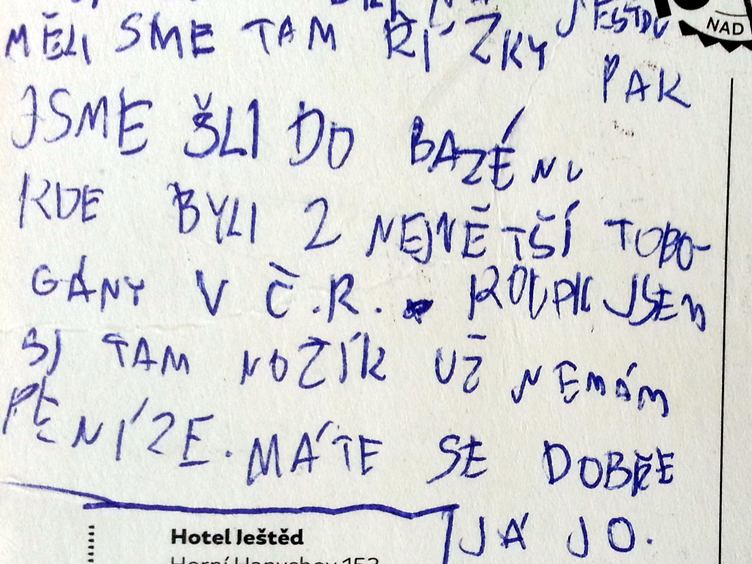 NAD
MĚLI SME TAM ŘÍZKY
PAK
JSME ŠLI DO BAZÉNU
KDE BYLI 2 NEJVĚTŠÍ TOBO-
GÁNY V Č.R. KOUPIL JSEM
SI TAM NOŽÍK UŽ NEMÁM
PENÍZE. MÁTE SE DOBŘE
JÁ JO.
Hotel Ještěd